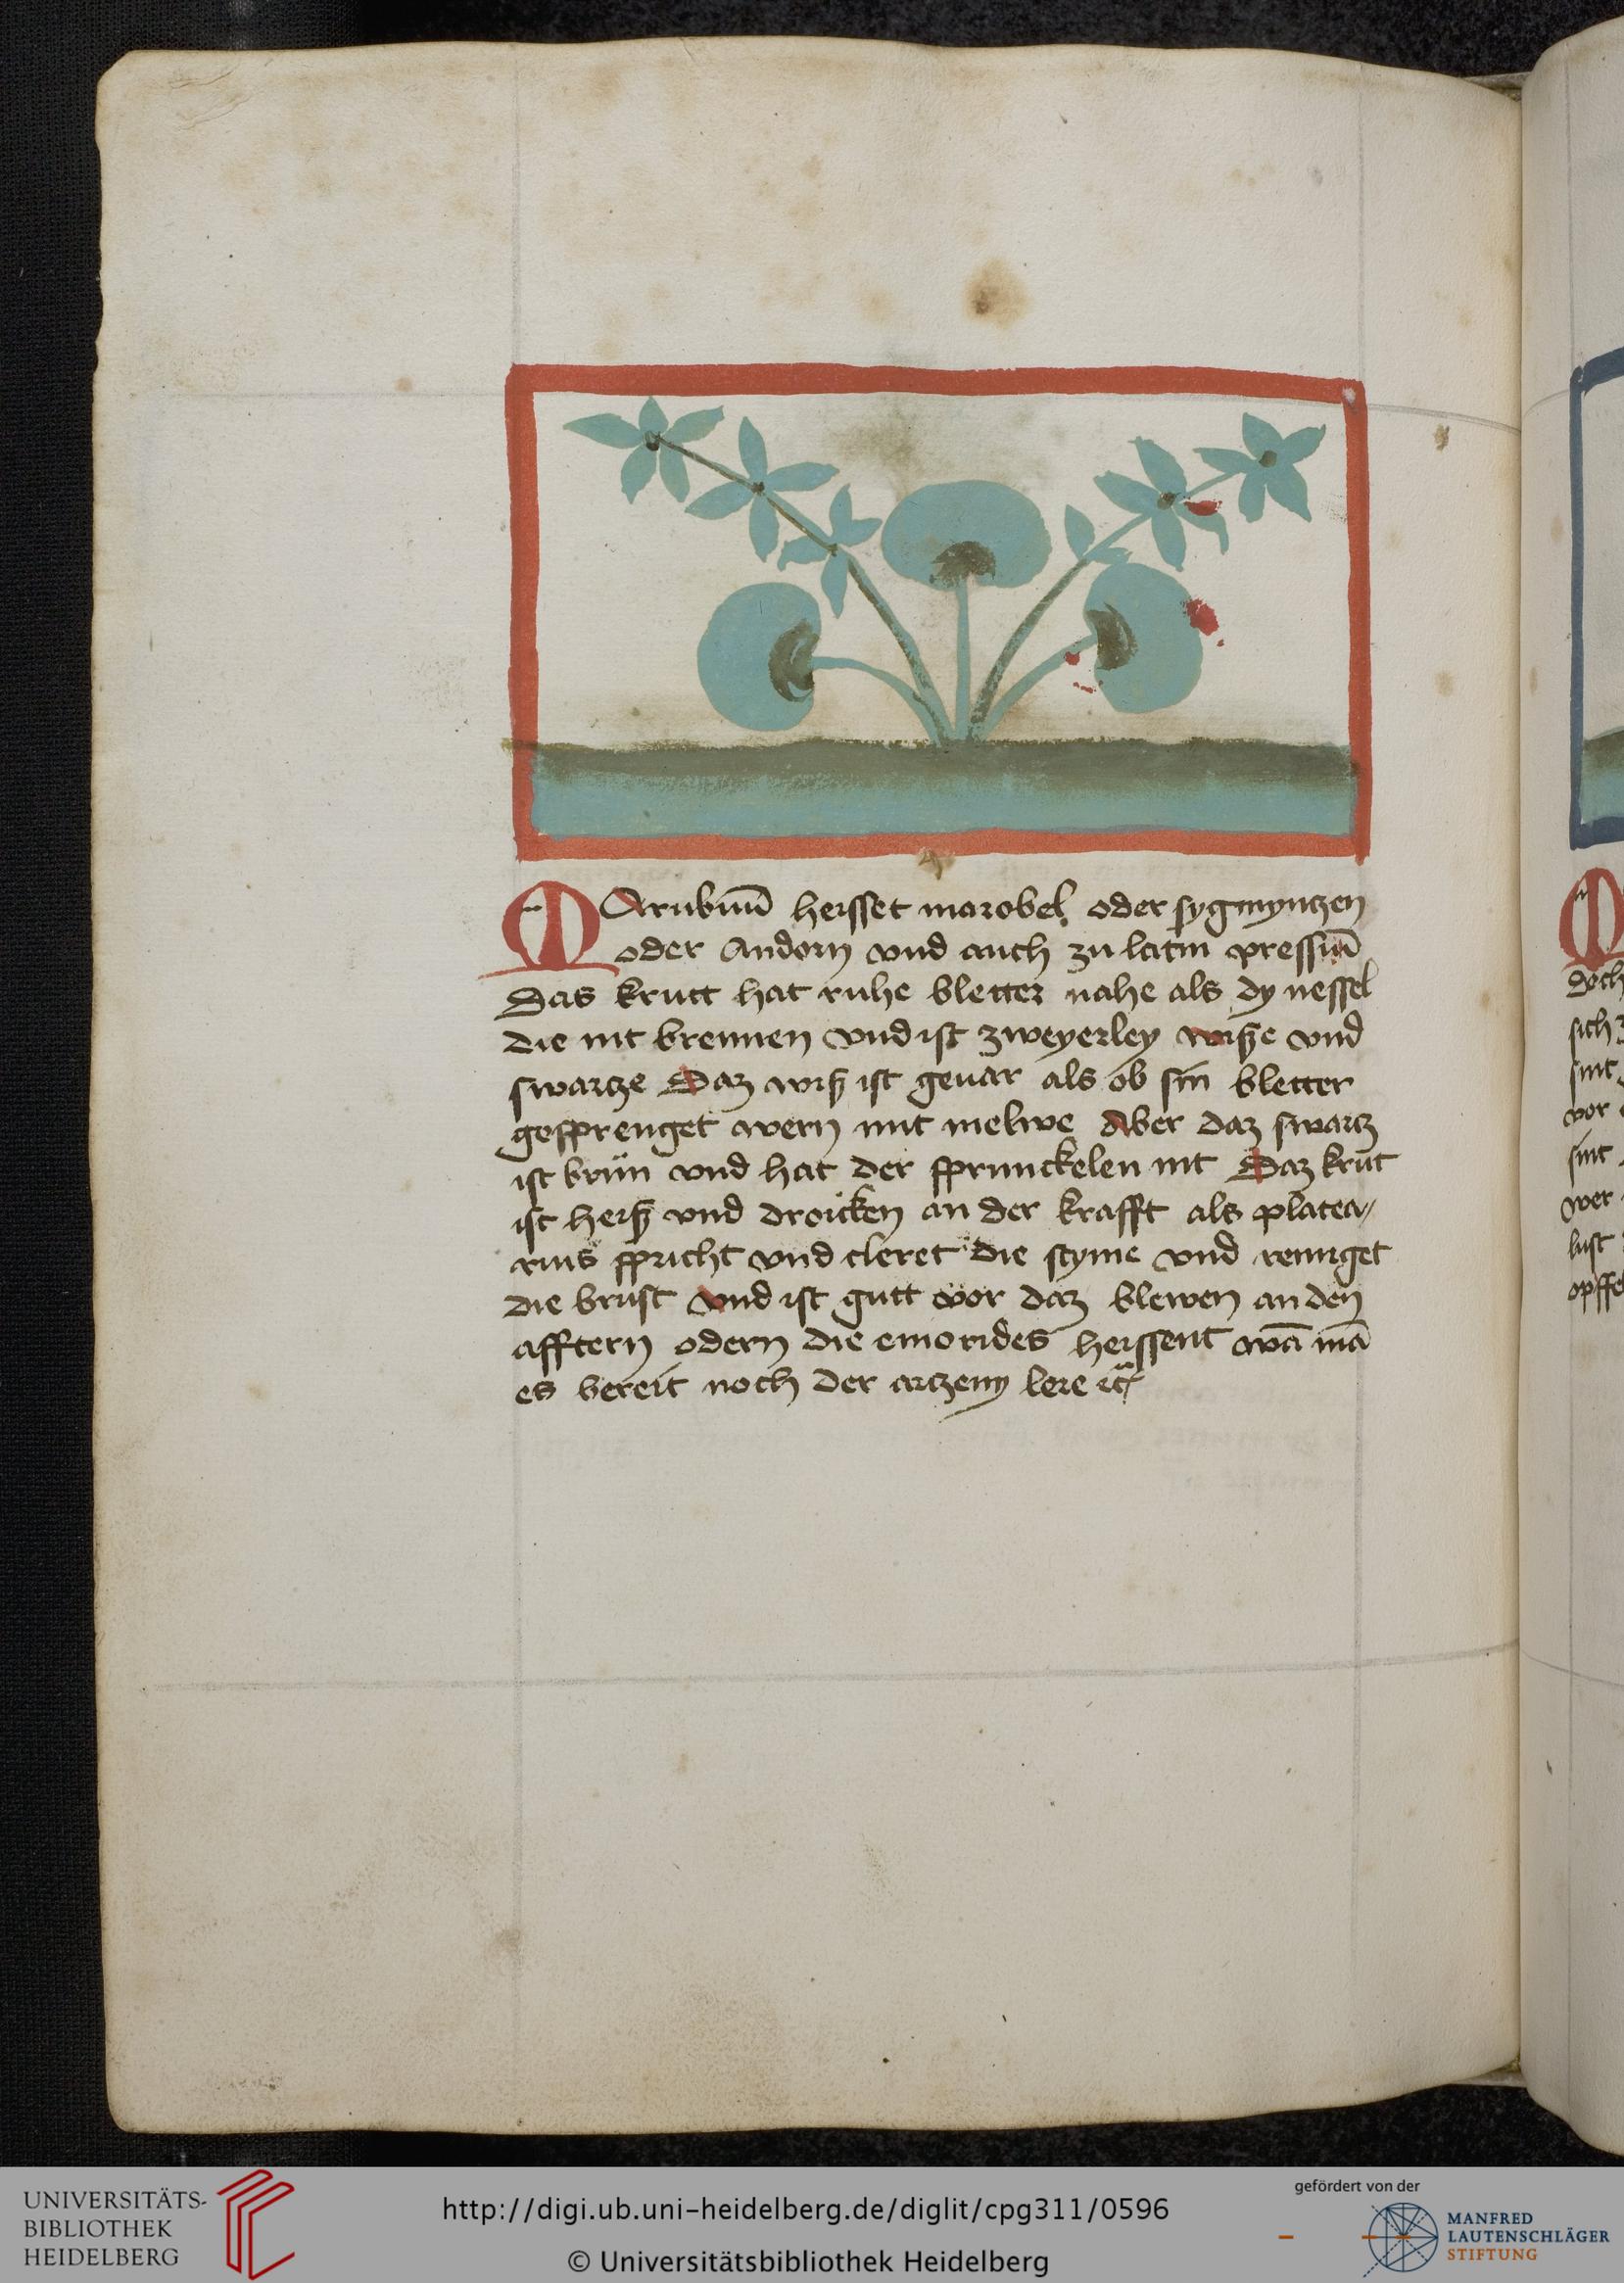 MArubiuũ heisset marobel oder sygmyntzen
oder Andorn vnd auch zu latin pressiũ
Das krutt hat ruhe bletter nahe als dy nessel
die nit brennen vnd ist zweyerley wisze vnd
swartze Daz wisz ist geuar als ob sin bletter
gesprenget wern mit melwe Aber daz swartz
ist brün vnd hat der sprunckelen nit Daz krut
ist heisz vnd drocken an der krafft als platea〃
rius spricht vnd cleret die styme vnd reiniget
die brust vnd ist gutt vor daz blewen an den
afftern odern die emorides heissent wã mã
es bereit noch der artzeny lere ꝛc̃
doch
sich z
sint
vor
sint
wer
lust
opffe
UNIVERSITÄTS-
BIBLIOTHEK
HEIDELBERG
http://digi.ub.uni-heidelberg.de/diglit/cpg311/0596
© Universitätsbibliothek Heidelberg
gefördert von der
MANFRED
LAUTENSCHLÄGER
STIFTUNG